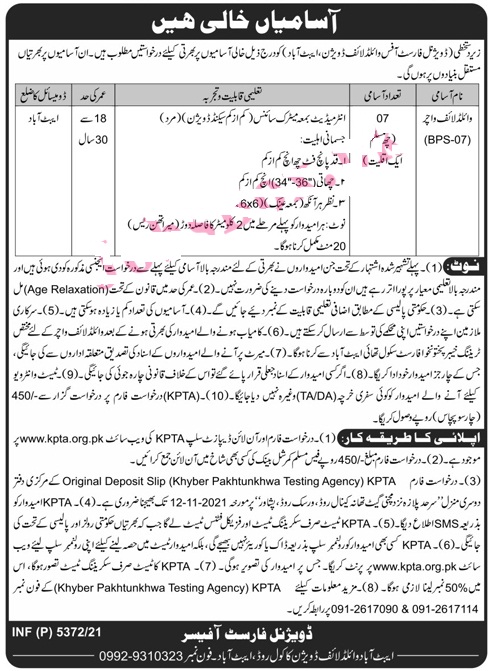 آسامیاں خالی ہیں
زیر دستخطی (ڈویژنل فارسٹ آفس وائلڈ لائف ڈویژن، ایبٹ آباد) کو درج ذیل خالی آسامیوں پر بھرتی کیلئے درخواستیں مطلوب ہیں۔ ان آسامیوں پر بھرتیاں
مستقل بنیادوں پر ہوں گی۔
نام آسامی تعداد آسامی تعلیمی قابلیت و تجربہ عمر کی حد ڈومیسائل کا ضلع
وائلڈ لائف واچر 07 انٹرمیڈیٹ بمعہ میٹرک سائنس (کم از کم سیکنڈ ڈویژن) (مرد) 18 سے ایبٹ آباد
(BPS-07) (چھ مسلم جسمانی اہلیت: 30 سال
ایک اقلیت) ۱۔ قد پانچ فٹ چھ انچ کم از کم
۲۔ چھاتی (34"-36") انچ کم از کم
۳۔ نظر ہر آنکھ (بمعہ عینک) 6x6۔
نوٹ: ہر امیدوار کو پہلے مرحلے میں 2 کلومیٹر کا فاصلہ دوڑ (میراتھن ریس)
20 منٹ مکمل کرنا ہوگا۔
نوٹ: (1)۔ پہلے تشہیر شدہ اشتہار کے تحت جن امیدواروں نے بھرتی کے لئے مندرجہ بالا آسامی کیلئے پہلے سے درخواست ایجنسی مذکورہ کو دی ہوئی ہیں اور
مندرجہ بالا تعلیمی معیار پر پورا اتر رہے ہیں ان کو دوبارہ درخواست دینے کی ضرورت نہیں۔ (2)۔ عمر کی حد میں قانون کے تحت (Age Relaxation) مل
سکتی ہے۔ (3)۔ حکومتی پالیسی کے مطابق اضافی تعلیمی قابلیت کے نمبر دیئے جائیں گے۔ (4)۔ آسامیوں کی تعداد کم یا زیادہ ہو سکتی ہیں۔ (5)۔ سرکاری
ملازمین اپنی درخواستیں اپنی محکمے کی توسط سے ارسال کر سکتے ہیں۔ (6)۔ کامیاب ہونے والے امیدوار کی بھرتی ہونے کے بعد وائلڈ لائف واچر کے لئے مختص
ٹریننگ خیبر پختونخوا فارسٹ سکول تھائی ایبٹ آباد سے کرنا ہوگا۔ (7)۔ میرٹ پر آنے والے امیدواروں کے اسناد کی تصدیق متعلقہ اداروں سے کی جائیگی،
جس کے چارجز امیدوار خود ادا کریگا۔ (8)۔ اگر کسی امیدوار کے اسناد جعلی قرار پائے گئے تو اس کے خلاف قانونی چارہ جوئی کی جائیگی۔ (9)۔ ٹیسٹ و انٹرویو
کیلئے آنے والے امیدوار کو کوئی سفری خرچہ (TA/DA) وغیرہ نہیں دیا جائیگا۔ (10)۔ (KPTA) درخواست فارم پر درخواست گزار سے -/450
(چار سو پچاس) روپے وصول کریگا۔
اپلائی کا طریقہ کار: (1)۔ درخواست فارم اور آن لائن ڈیپازٹ سلپ KPTA کی ویب سائٹ www.kpta.org.pk پر
موجود ہے۔ (2)۔ درخواست فارم مبلغ -/450 روپے فیس مسلم کمرشل بینک کی کسی بھی شاخ میں آن لائن جمع کرائیں۔
(3)۔ درخواست فارم Original Deposit Slip (Khyber Pakhtunkhwa Testing Agency) KPTA کے مرکزی دفتر
دوسری منزل "سرحد پلازہ نزد مچنی گیٹ تھانہ کینال روڈ، ورسک روڈ، پشاور" پر مورخہ 12-11-2021 تک بھیجنا ضروری ہے۔ (4)۔ KPTA امیدوار کو
بذریعہ SMS اطلاع دیگا۔ (5)۔ KPTA ٹیسٹ صرف سکریننگ ٹیسٹ اور فزیکل فٹنس ٹیسٹ لے گا جب کہ بھرتیاں حکومتی رولز اور پالیسی کے تحت کی
جائیگی۔ (6)۔ KPTA کسی بھی امیدوار کو رول نمبر سلپ بذریعہ ڈاک یا کوریئر نہیں بھیجے گی، بلکہ امیدوار ٹیسٹ میں حصہ لینے کیلئے اپنی رول نمبر سلپ کیلئے ویب
سائٹ www.kpta.org.pk پر پرنٹ کریگا۔ جس پر امیدوار کی تصویر ہوگی۔ (7)۔ KPTA کا ٹیسٹ صرف سکریننگ ٹیسٹ تصور ہوگا، اس
میں 50% نمبر لینا لازمی ہوگا۔ (8)۔ مزید معلومات کیلئے KPTA (Khyber Pakhtunkhwa Testing Agency) کے فون نمبر
091-2617114 & 091-2617090 پر رابطہ کریں۔
INF (P) 5372/21
ڈویژنل فارسٹ آفیسر
ایبٹ آباد وائلڈ لائف ڈویژن کاکول روڈ، ایبٹ آباد۔ فون نمبر 0992-9310323